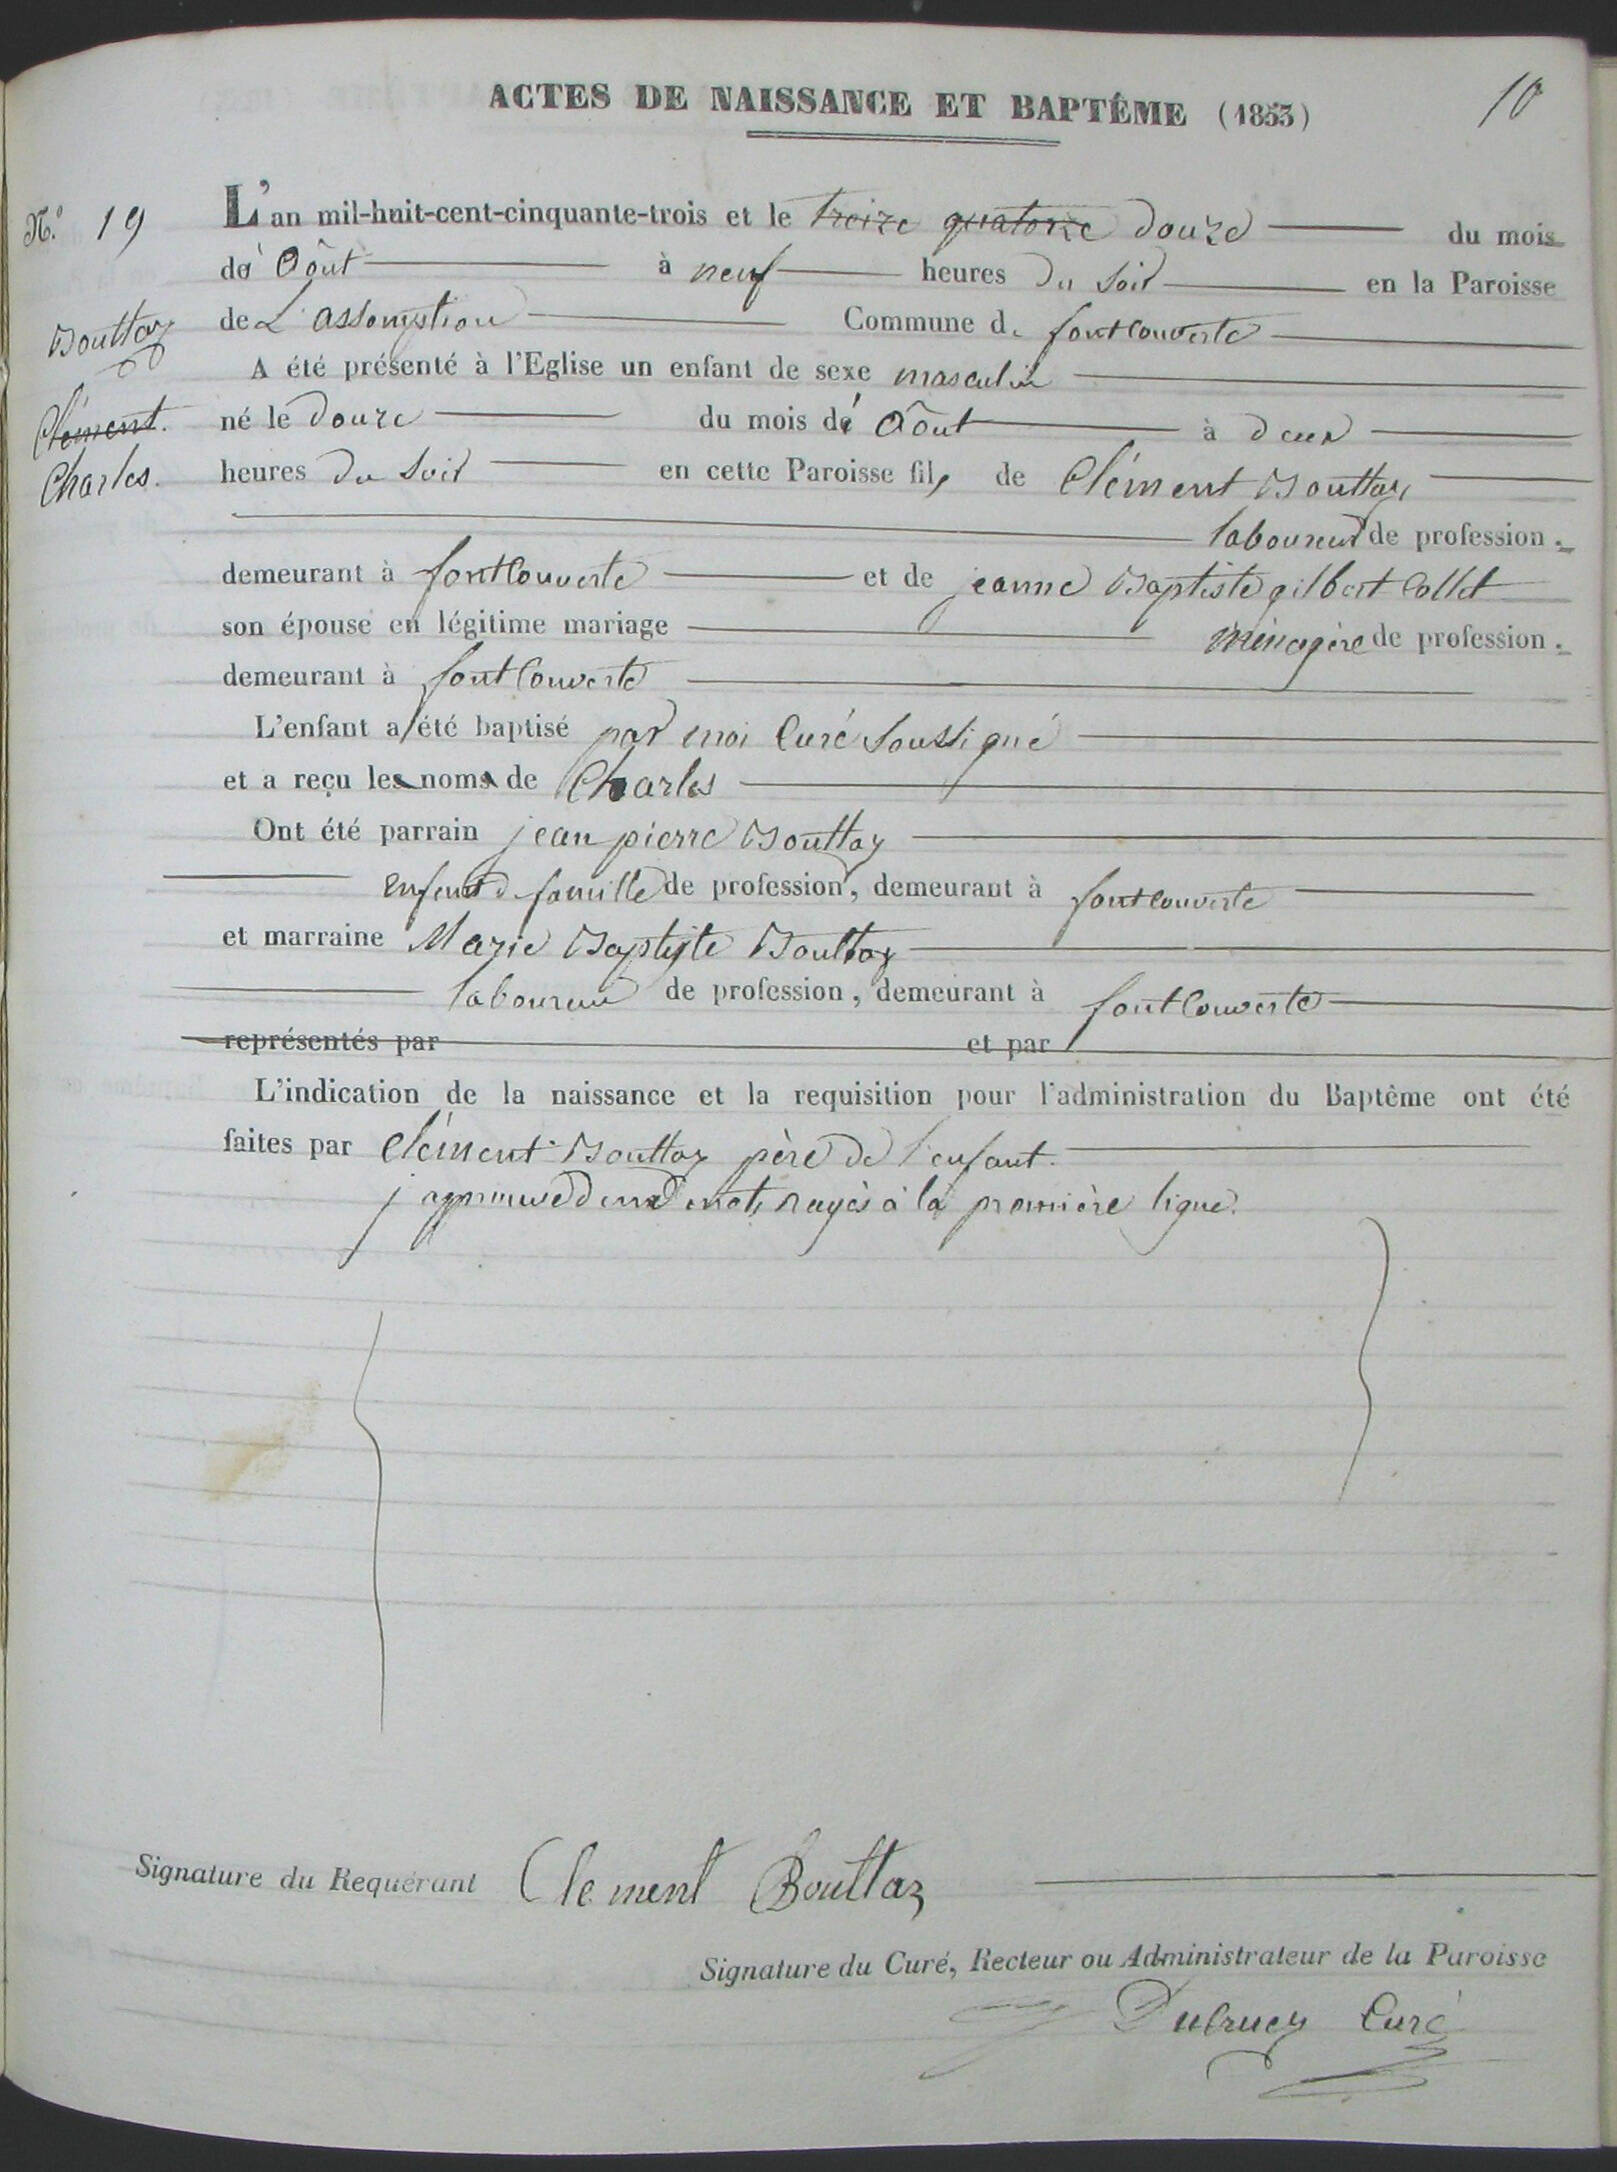 ACTES DE NAISSANCE ET BAPTÊME (1853)
10
N.º 19
L'an mil-huit-cent-cinquante-trois et le treize quatorze douze du mois
de Oôut à neuf heures du soir en la Paroisse
de L'assomption Commune de fontcouverte
Bouttaz
A été présenté à l'Eglise un enfant de sexe masculin
Clément.
né le douze du mois de Oôut à deux
Charles.
heures du soir en cette Paroisse fils de Clément Bouttaz
laboureur de profession.
demeurant à fontcouverte et de jeanne Baptiste gilbert Collet
son épouse en légitime mariage ménagère de profession.
demeurant à fontcouverte
L'enfant a été baptisé par moi Curé soussigné
et a reçu les noms de Charles
Ont été parrain jean pierre Bouttaz
enfant de famille de profession, demeurant à fontcouverte
et marraine Marie Baptiste Bouttaz
laboureur de profession, demeurant à fontcouverte
représentés par et par
L'indication de la naissance et la requisition pour l'administration du Baptême ont été
faites par Clément Bouttaz père de l'enfant.
j'approuve deux mots rayés à la première ligne.
Signature du Requérant Clement Bouttaz
Signature du Curé, Recteur ou Administrateur de la Paroisse
Curé